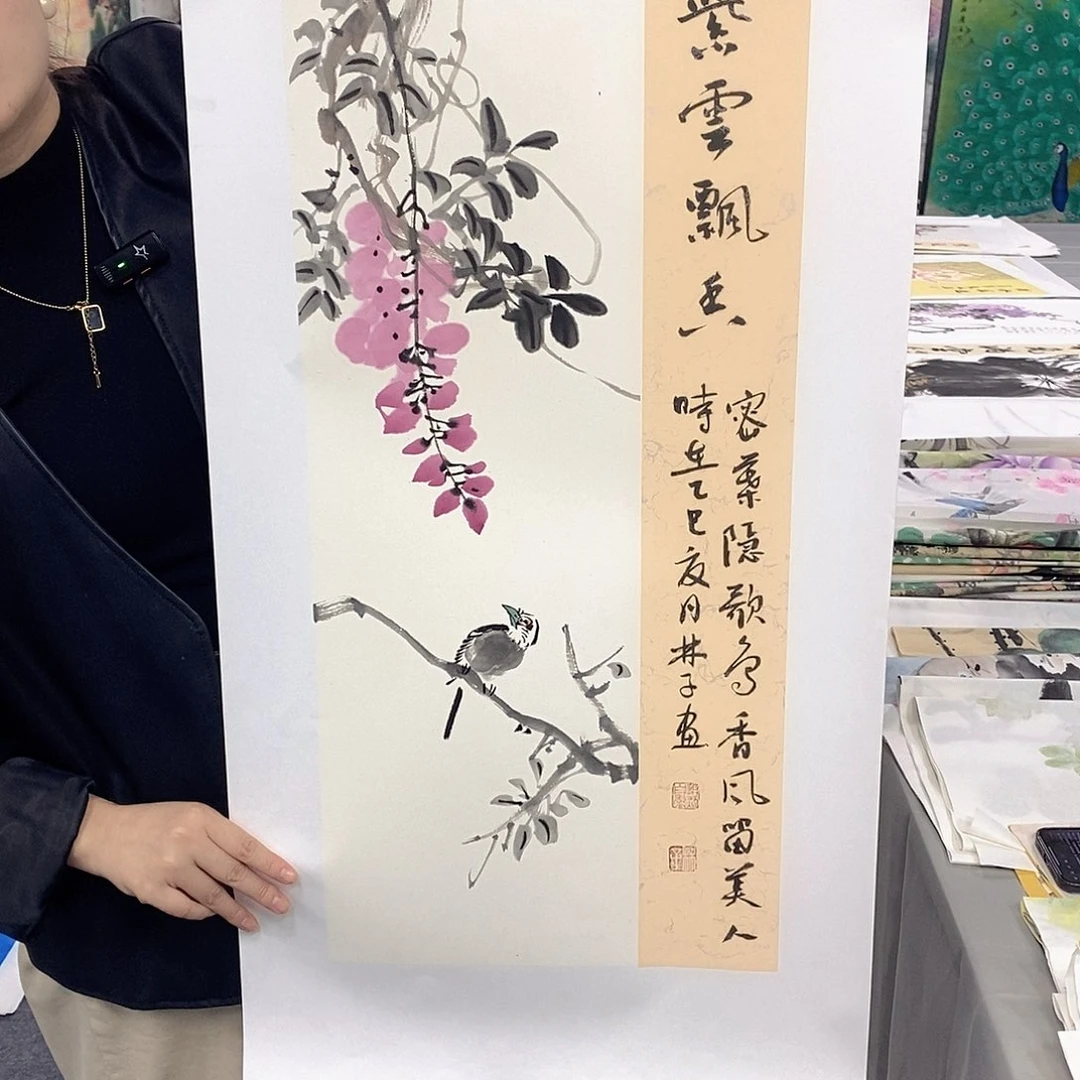 紫雲飄香
密葉隱歌鳥香風留美人
時在乙巳夏月林子画